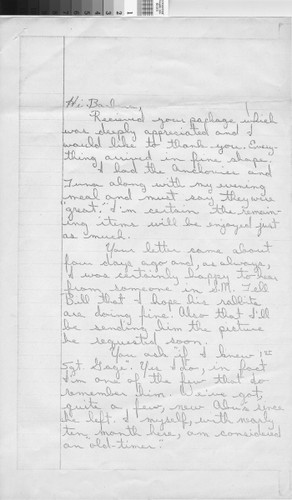 Hi
Received your package which
was deeply appreciated and I
would like to thank you. Every-
thing arrived in fine shape.
I had the Anchovies and
Tuna along with my evening
meal and must say they were
"great." I'm certain the remain-
ing items will be enjoyed just
as much.
Your letter came about
four days ago and, as always,
I was certainly happy to hear
from someone in S.M. Tell
Bill that I hope his rabbits
are doing fine. Also that I'll
be sending him the picture
he requested soon.
You ask "if I knew 1st
Sgt. Yes I do, in fact
I'm one of the few that do
remember him. We've got,
quite a few, new since
he left. I myself, with
ten month here, am considered
an old-timer."